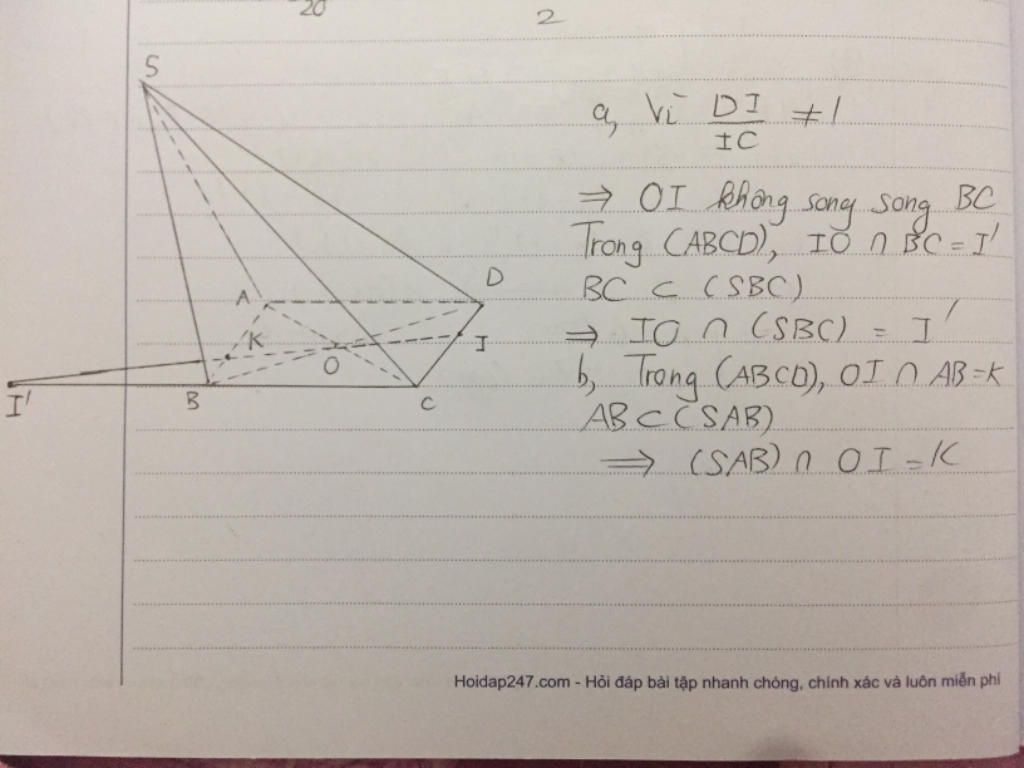 20
2
S
a, Vì DI/IC ≠ 1
⇒ OI không song song BC
Trong (ABCD), IO ∩ BC = I'
BC ⊂ (SBC)
⇒ IO ∩ (SBC) = I'
b, Trong (ABCD), OI ∩ AB = K
AB ⊂ (SAB)
⇒ (SAB) ∩ OI = K
D
A
K
I
O
I'
B
C
Hoidap247.com - Hỏi đáp bài tập nhanh chóng, chính xác và luôn miễn phí